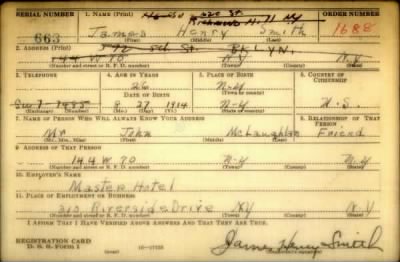 SERIAL NUMBER 1. NAME (Print) ORDER NUMBER
Richmond Hill NY
663 James Henry Smith 1688
(First) (Middle) (Last)
2. ADDRESS (Print) St. BKLYN.
144 W 70 N-Y N.Y
(Number and street or R. F. D. number) (Town) (County) (State)
3. TELEPHONE 4. AGE IN YEARS 5. PLACE OF BIRTH 6. COUNTRY OF CITIZENSHIP
26 N-Y
DATE OF BIRTH (Town or county)
8 27 1914 N-Y U.S.
(Mo.) (Day) (Yr.) (State or country)
7. NAME OF PERSON WHO WILL ALWAYS KNOW YOUR ADDRESS 8. RELATIONSHIP OF THAT PERSON
Mr John McLaughlan Friend
(Mr., Mrs., Miss) (First) (Middle) (Last)
9. ADDRESS OF THAT PERSON
144 W 70 N-Y N-Y
(Number and street or R. F. D. number) (Town) (County) (State)
10. EMPLOYER'S NAME
Master Hotel
11. PLACE OF EMPLOYMENT OR BUSINESS
310 Riverside Drive NY N.Y
(Number and street or R. F. D. number) (Town) (County) (State)
I AFFIRM THAT I HAVE VERIFIED ABOVE ANSWERS AND THAT THEY ARE TRUE.
REGISTRATION CARD
D. S. S. Form 1 James Henry Smith